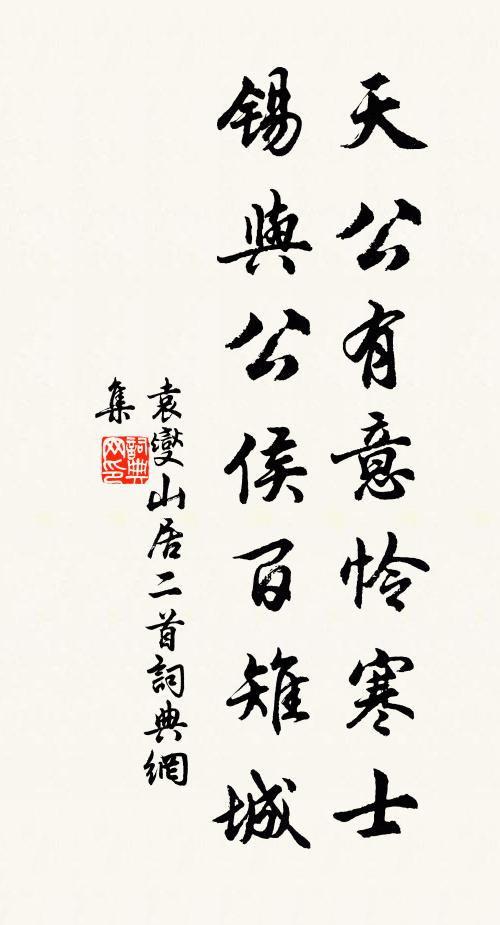 天公有意怜寒士
锡與公侯百雉城
袁燮山居二首詞典網
集
詞典网印